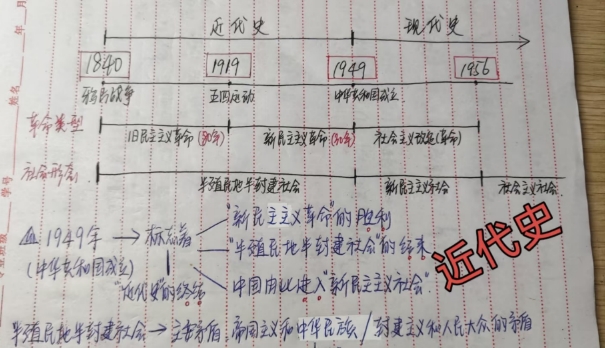 近代史 现代史
1840 1919 1949 1956
鸦片战争 五四运动 中华共和国成立
革命类型 旧民主主义革命(80年) 新民主主义革命(30年) 社会主义改造(革命)
社会形态 半殖民地半封建社会 新民主主义社会 社会主义社会
"新民主主义革命"的胜利
1949年 → 标志着 "半殖民地半封建社会"的结束
(中华共和国成立) 中国由此进入"新民主主义社会".
"近代史"的终结
近代史
半殖民地半封建社会 → 主要矛盾:帝国主义和中华民族/封建主义和人民大众的矛盾
姓名
学号